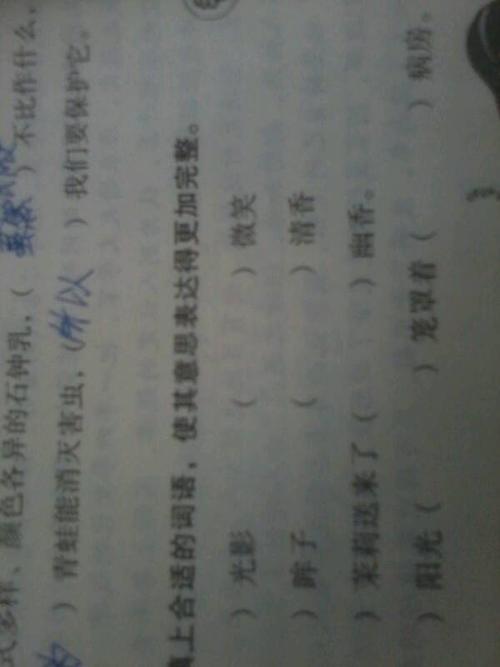 式多样、颜色各异的石钟乳，（虽然）不比作什么，
为）青蛙能消灭害虫，（所以）我们要保护它。
填上合适的词语，使其意思表达得更加完整。
）光影 （ ）微笑
）眸子 （ ）清香
）茉莉送来了（ ）幽香。
）阳光（ ）笼罩着（ ）病房。